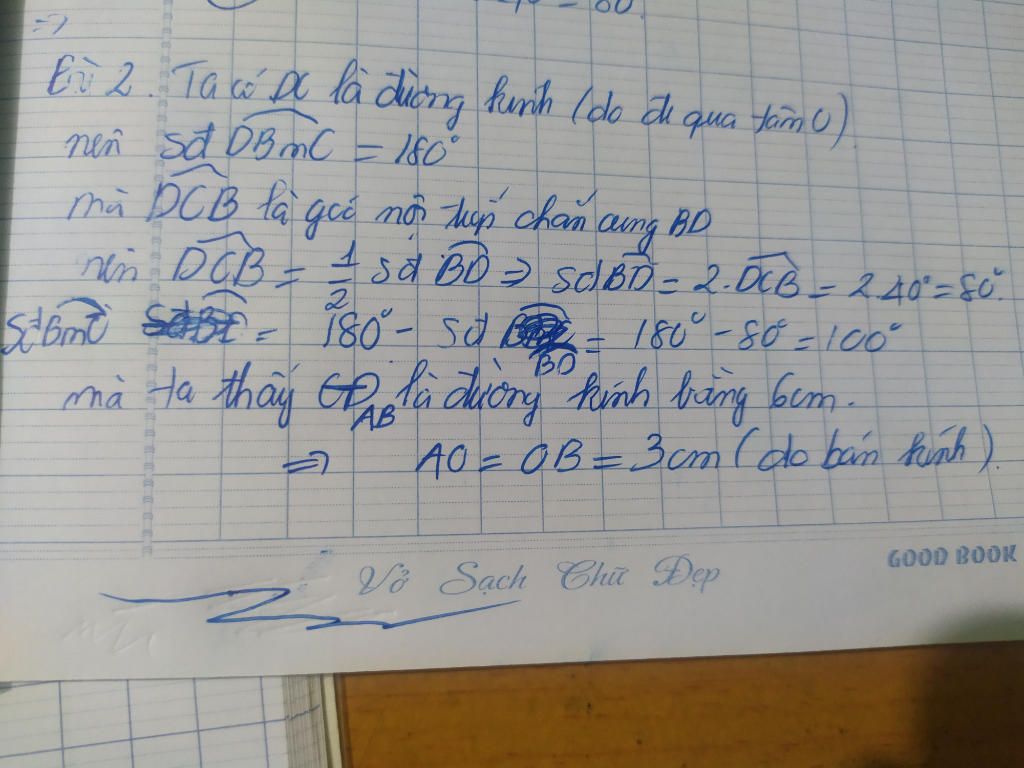 =>
= 80.
Bài 2. Ta có DC là đường kính (do đi qua tâm O)
nên sđ DBmC = 180°
mà DCB là góc nội tiếp chắn cung BD
nên DCB = 1/2 sđ BD => sđ BD = 2. DCB = 2.40° = 80°.
sđ BmC = 180° - sđ BD = 180° - 80° = 100°
mà ta thấy AB là đường kính bằng 6cm.
=> AO = OB = 3cm (do bán kính).
Vở Sạch Chữ Đẹp
GOOD BOOK